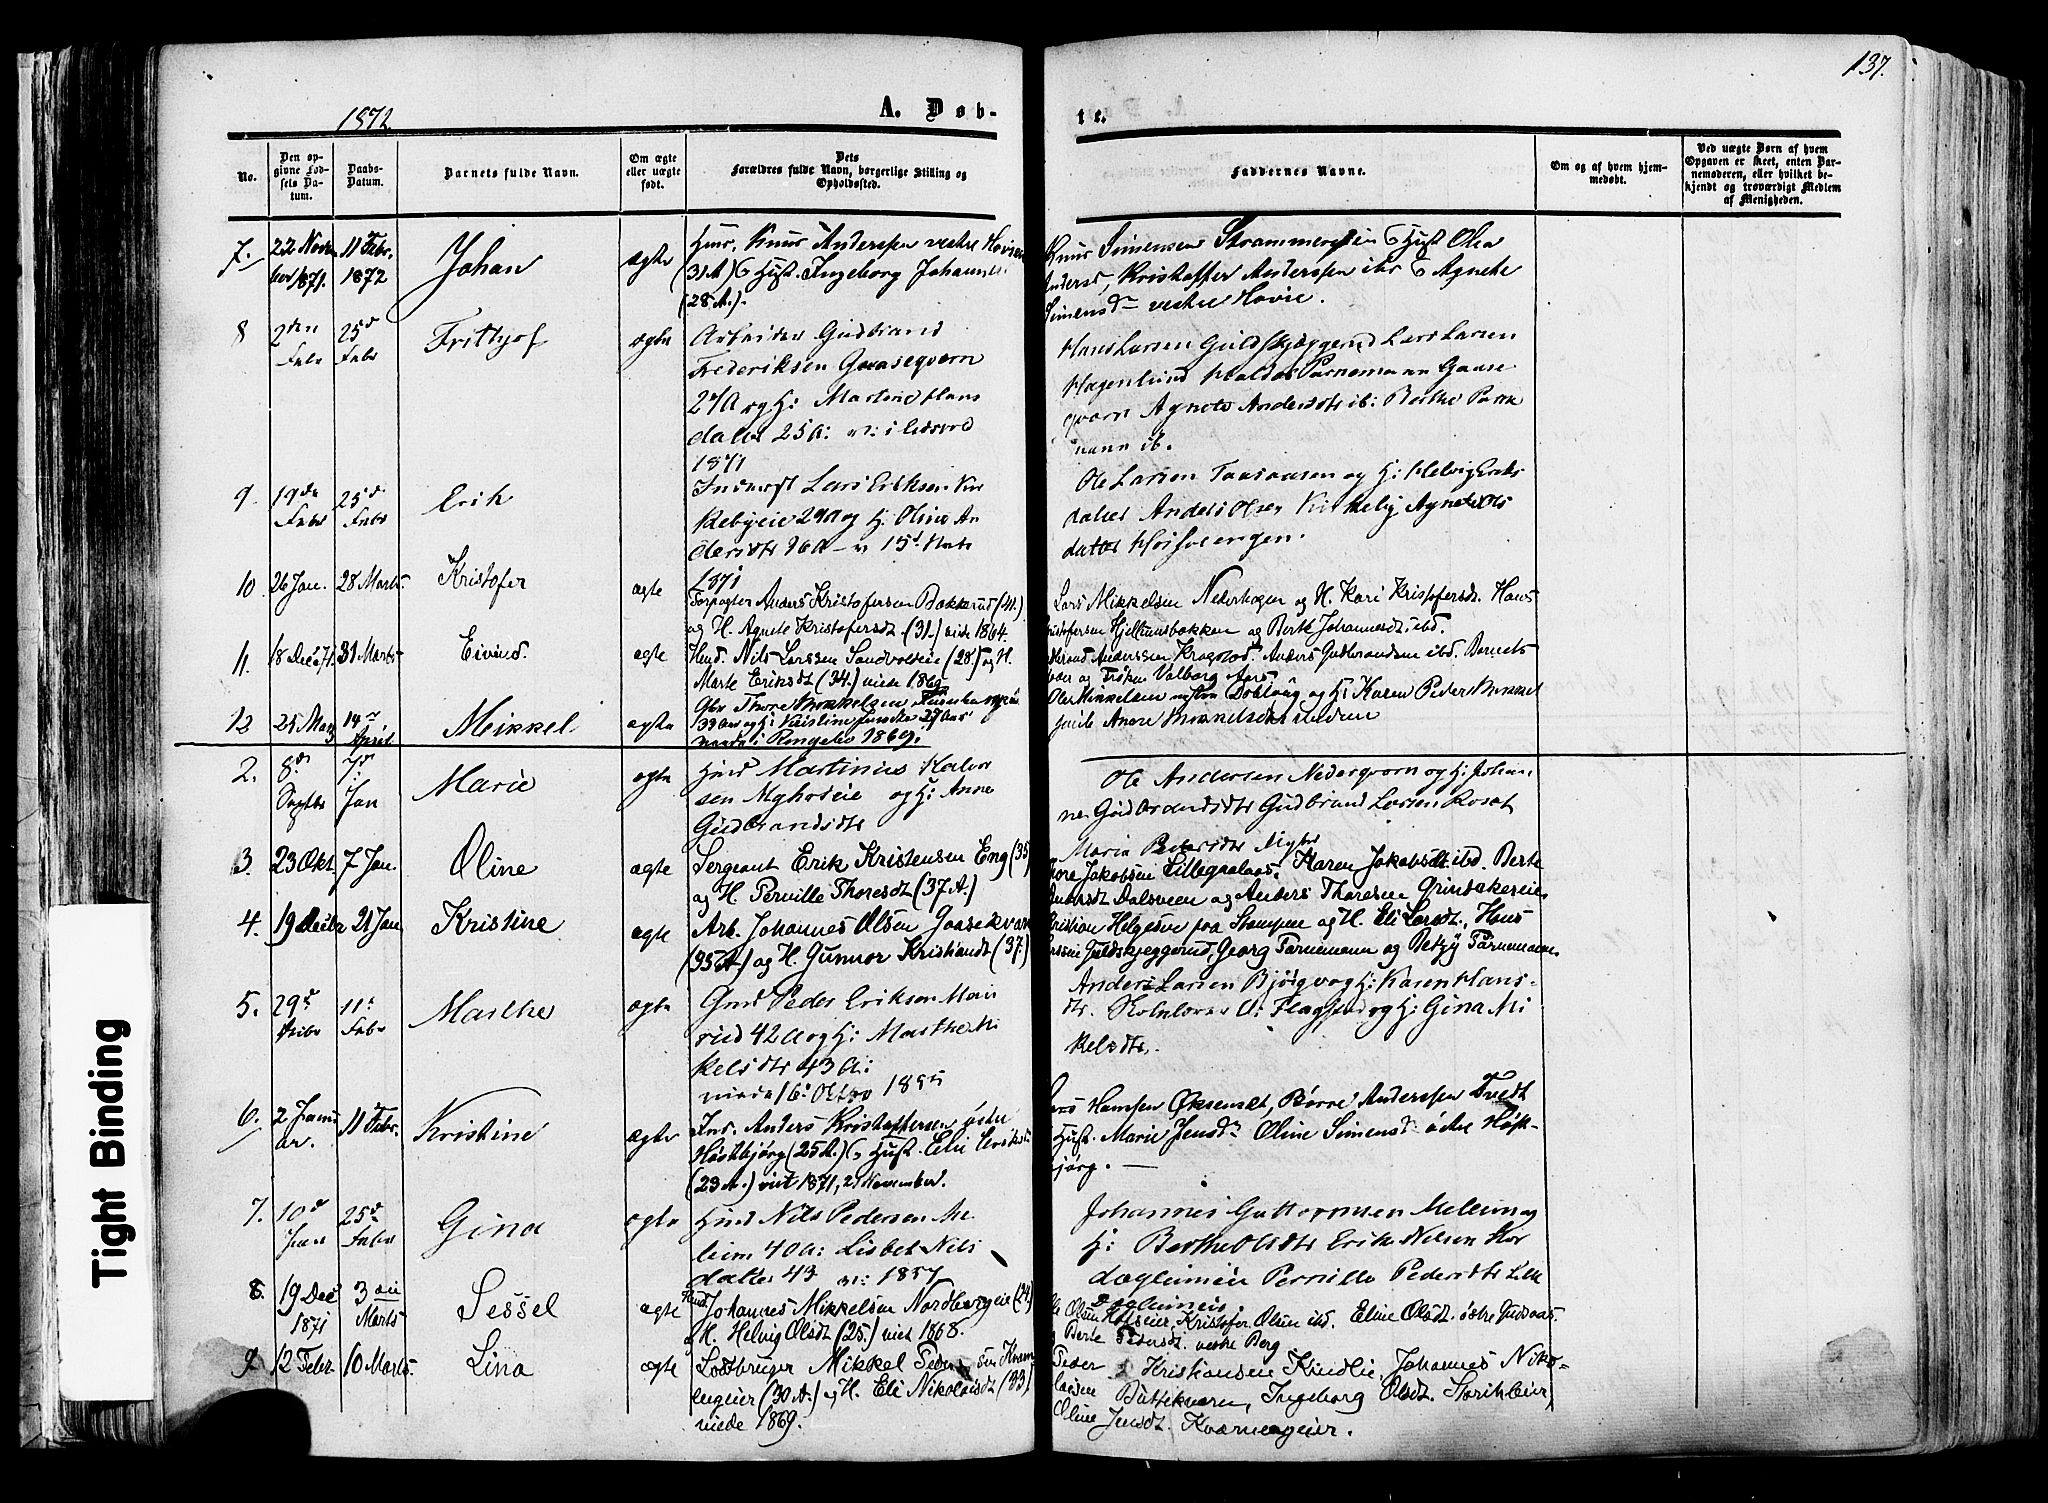 137.
1872
A. Døb-
te.
No.
Den op-
givne Fød-
sels Da-
tum.
Daabs-
Datum.
Barnets fulde Navn.
Om ægte
eller uægte
født.
Dets
Forældres fulde Navn, borgerlige Stilling og
Opholdssted.
Faddernes Navne.
Om og af hvem hjem-
medøbt.
Ved uægte Børn af hvem
Opgaven er skeet, enten Bar-
nemoderen, eller hvilket be-
kjendt og troværdigt Medlem
af Menigheden.
7.
22 Novem
ber 1871.
11 Febr.
1872
Johan
ægte
Knut Anderssen vestre Hovie
(31 A) Hust. Ingeborg Johannesd.
(28 A.).
Knut Simensen Hust Olea
Andersd, Kristoffer Anderssen ibd Agnete
Simensdr vestre Hovie.
8
2den
Febr
25d
Febr
Frithjof
ægte
Arbeider Gudbrand
Frederiksen Gaaseqvern
27A og H: Martine Hans
datter 25A: v: i Eidsvold
1871
Hans Larsen Guldskjæggerud Lars Larsen
Hagenlund Halder Parnemann Gaase
qvern Agnete Andersdtr ib: Berthe Parne
mann ib.
9.
19de
Febr
25d
Febr
Erik
Inderst Lars Eriksen
29A og H. Oline An
dersdtr 26A - v 15d Marts
1871
Ole Larsen Taasaasen og H: Helvig Eriks
datter Anders Olsen Kirkelig Agnete Ols
datter Hoisveengen.
10
26 Jan.
28 Marts
Kristofer
ægte
Forpagter Anders Kristofersen Bakkerud (41.)
og H. Agnete Kristofersdt (31.) viede 1864.
Lars Mikkelsen Nederhagen og H. Kari Kristofersdt. Hans
Kristofersen Hjellumsbakken og Berte Johannesdt. ibd.
11.
18 Dec 71.
31 Marts
Eivind
ægte
Husd. Nils Larssen Sandvoldeie (28) og H.
Marte Eriksdt (34.) viede 1869
Anderssen Kragstad. Anders Gudbrandsen ibd. Bernet
og Frøken Valborg Aars.
12
25 Marts
14de
April
Mikkel
ægte
Thore Mikkelsen
33 Aar og H: Kristine 27 Aar
viede i Ringebo 1869.
Ole Mikkelsen Dobloug og H: Karen Peders
Anne Mikkelsdatter
2.
8d
Septbr
7d
Jan
Marie
ægte
Husd Martinius Halvor
sen Myhrseie og H: Anne
Gudbrandsdtr
Ole Andersen Nederqvern og H: Johan
ne Gudbrandsdtr Gudbrand Larsen Rosat
Maria Pedersdtr Nigbr
3.
23 Okt.
7 Jan.
Oline
ægte
Sergeant Erik Kristensen Eng (35)
og H. Pernille Thoresdt (37 A.)
Thore Jakobsen Lillegaalaas, Karen Jakobsdt. ibd. Berte
Andersdt Dalsveen og Anders Thoresen Grindakereie
4.
19 Decbr
21 Jan
Kristine
ægte
Arb. Johannes Olsen Gaasekværn
(35 A.) og H. Gunnor Kristiansdt (37.)
Kristian Helgesve fra Stampen og H. Eli Larsdt, Hans
Larssen Guldskjeggerud, Georg Parnemann og Betzy Parnemann
5.
29d
Decbr
11d
Febr
Marthe
ægte
Grd Peder Eriksen Mæh
rud 42A og H: Marthe Mi
kelsdtr 43A:
viede 16d Oktbr 1851
Anders Larsen Bjørge og H: Karen Hans-
dtr. Skolelærer O: Flagstad og H: Gina Mi
kelsdtr.
6.
2 Janu
ar.
11 Febr.
Kristine
ægte
Ind. Anders Kristoffersen østre
Høstbjørg (25 A.) Hust. Elie Eriksdr
(23 A.) viet 1871, 2 November.
Lars Hanssen Øksenest, Børre Anderssen Tvedt
Hust. Marie Jensdr Oline Simensdr østre Høst-
bjørg.
7.
10d
Jan
25d
Febr
Gina
ægte
Husd Nils Pedersen Me
leim 40A: Lisbet Nils
datter 43 v: 1857
Johannes Guttormsen Meleim og
H: Berthe Olsdtr Erik Nilsen Hor
dagleimeie Pernille Pedersdtr Lille
Dagleimeie
8.
19 Dec
1871
3die
Marts
Sessel
ægte
Husd Johannes Mikkelsen Nordbergeie (24.)
og H. Helvig Olsdt (25.) viet 1868.
Ole Olsen Kristofer Olsen ibd. Eline Olsdt. østre
og Berte Pedersdt. vestre Berg
9
12 Febr
10 Marts.
Lina
ægte
Lodbruger Mikkel Pedersen Kværn
engeier (30 A.) og H. Eli Nikolaisdt (33)
viede 1869.
Peder Kristiansen Kindlie, Johannes Niko-
laisen Buttekværn, Ingeborg Olsdt. Storihleier,
Oline Jensdt. Kværnengeier.
Tight Binding